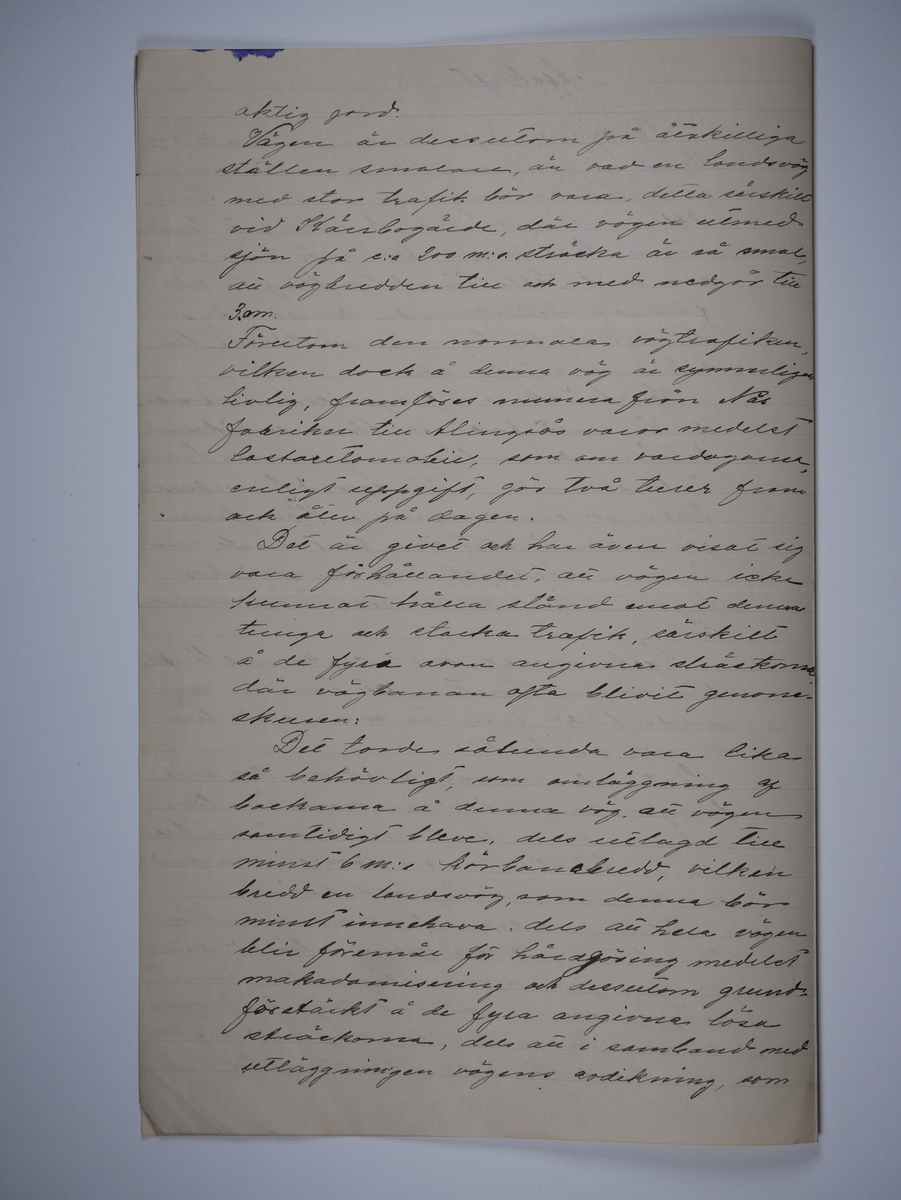 aktig jord.
Vägen är dessutom på åtskilliga
ställen smalare, än vad en landsväg
med stor trafik bör vara, detta särskilt
vid Kärrbogärde, där vägen utmed
sjön på c:a 200 m:s sträcka är så smal,
att vägbredden till och med nedgår till
3.0m.
Förutom den normala vägtrafiken,
vilken dock å denna väg är synnerligen
livlig, framföres numera från Nås
fabriker till Alingsås varor medelst
lastautomobil, som om vardagarna,
enligt uppgift, gör två turer fram
och åter på dagen.
Det är givet och har även visat sig
vara förhållandet, att vägen icke
kunnat hålla stånd emot denna
tunga och starka trafik, särskilt
å de fyra ovan angivna sträckorna
där vägbanan ofta blivit genom-
skuren:
Det torde sålunda vara lika
så behövligt, som omläggning af
backarna å denna väg, att vägen
samtidigt bleve, dels utlagd till
minst 6 m:s körbanebredd, vilken
bredd en landsväg, som denna bör
minst innehava, dels att hela vägen
blir föremål för hårdgöring medelst
makadamisering och dessutom grund-
förstärkt å de fyra angivna lösa
sträckorna, dels att i samband med
utläggningen vägens avdikning, som